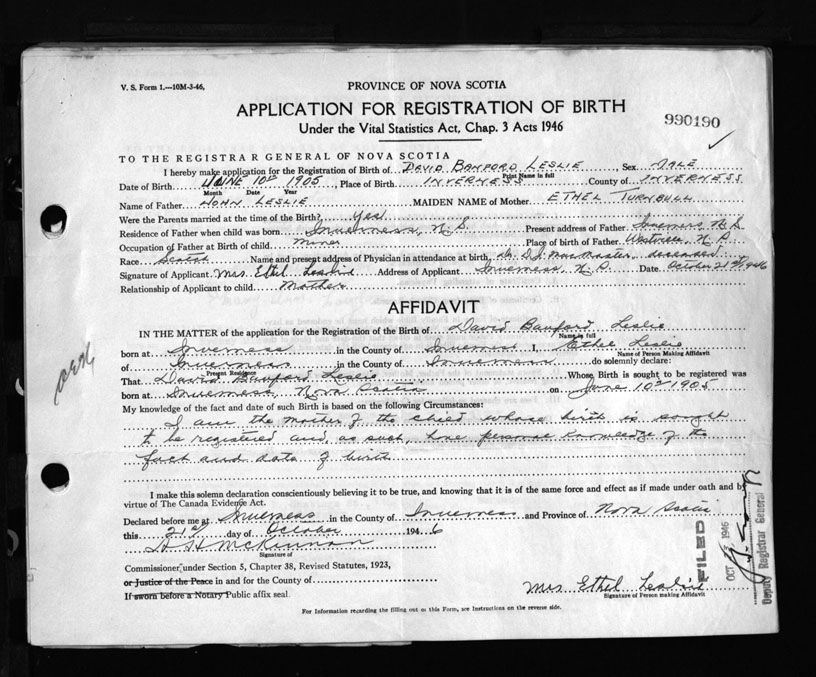 V. S. Form 1.—10M-3-46,
PROVINCE OF NOVA SCOTIA
APPLICATION FOR REGISTRATION OF BIRTH
Under the Vital Statistics Act, Chap. 3 Acts 1946
990190
TO THE REGISTRAR GENERAL OF NOVA SCOTIA
I hereby make application for the Registration of Birth of DAVID BANFORD LESLIE, Sex MALE
Print Name in full
Date of Birth JUNE 10th 1905, Place of Birth INVERNESS County of INVERNESS
Month Date Year
Name of Father JOHN LESLIE MAIDEN NAME of Mother ETHEL TURNBULL
Were the Parents married at the time of the Birth? Yes
Residence of Father when child was born Inverness, N.S. Present address of Father Inverness N.S.
Occupation of Father at Birth of child Miner Place of birth of Father Westville, N.S.
Race Scotch Name and present address of Physician in attendance at birth, Dr. D.J. MacMaster, deceased
Signature of Applicant Mrs. Ethel Leslie Address of Applicant Inverness, N.S. Date October 21st/1946
Relationship of Applicant to child Mother
AFFIDAVIT
IN THE MATTER of the application for the Registration of the Birth of David Banford Leslie
Name in full
born at Inverness in the County of Inverness I, Ethel Leslie
Name of Person Making Affidavit
of Inverness in the County of Inverness do solemnly declare:
Present Residence
That David Banford Leslie Whose Birth is sought to be registered was
born at Inverness, Nova Scotia on June 10th 1905
My knowledge of the fact and date of such Birth is based on the following Circumstances:
I am the mother of the child whose birth is sought
to be registered and as such, have personal knowledge of the
fact and date of birth
I make this solemn declaration conscientiously believing it to be true, and knowing that it is of the same force and effect as if made under oath and by
virtue of The Canada Evidence Act.
Declared before me at Inverness in the County of Inverness and Province of Nova Scotia
this 21st day of October 1946
McKinnon
Signature of
Commissioner under Section 5, Chapter 38, Revised Statutes, 1923,
or Justice of the Peace in and for the County of
If sworn before a Notary Public affix seal.
Mrs Ethel Leslie
Signature of Person making Affidavit
FILED
OCT 1946
Deputy Registrar General
For Information regarding the filling out of this Form, see Instructions on the reverse side.